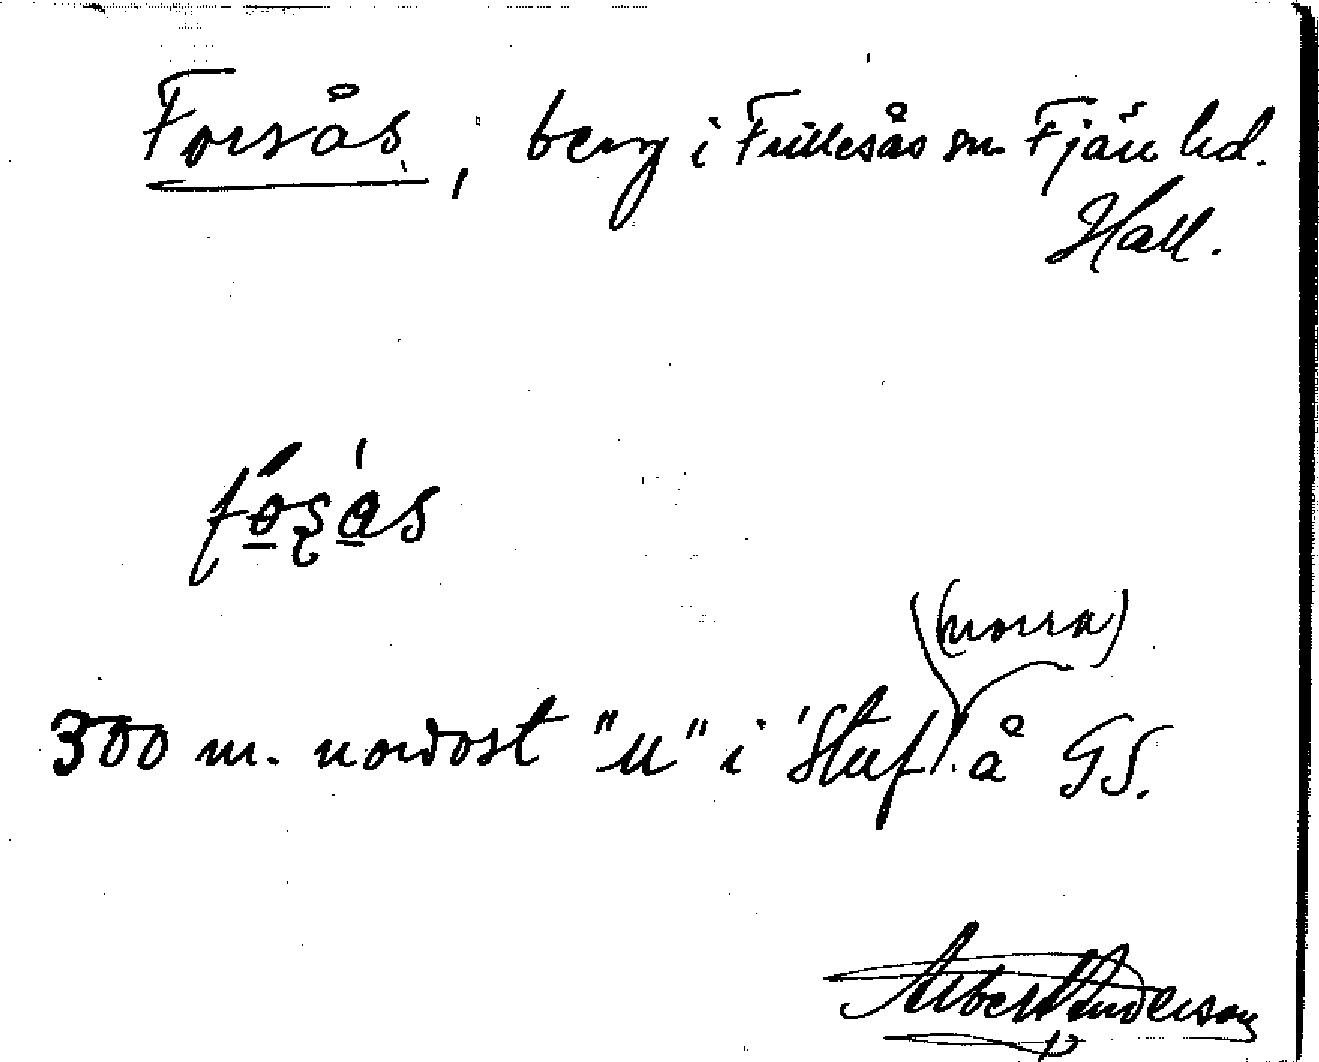 Forsås, berg i Frillesås sn Fjäre hd.
Hall.
(norra)
300 m. nordost "u" i Stuf å GS.
Albert Anderson